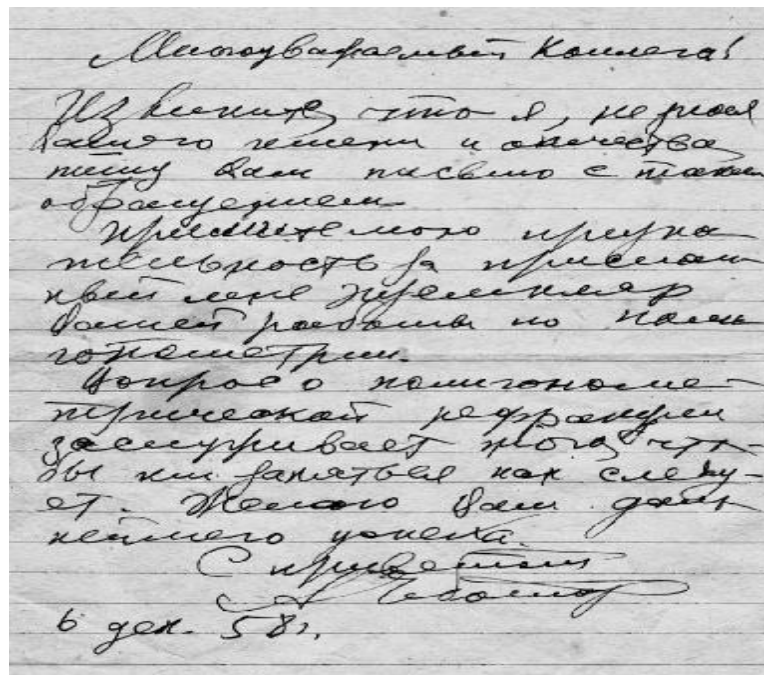 Многоуважаемый Коллега!
Извините, что я, не зная
Вашего имени и отчества
пишу Вам письмо с таким
обращением.
Примите мою призна-
тельность за прислан-
ный мне экземпляр
Вашей работы по поли-
гонометрии.
Вопрос о полигономе-
трической рефракции
заслуживает того, что-
бы им заняться как следу-
ет. Желаю Вам даль-
нейшего успеха.
С приветом
6 дек. 58 г.